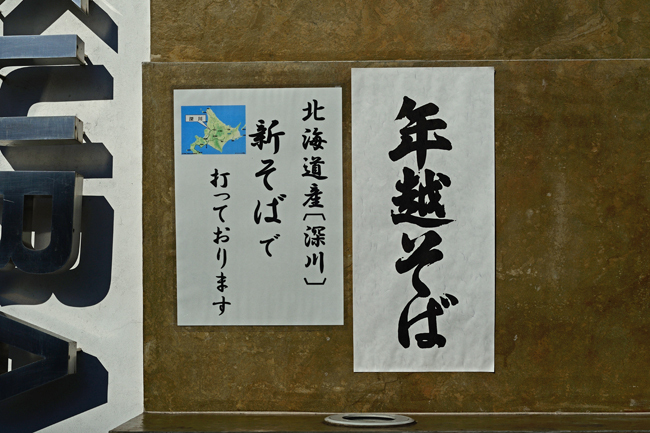 年越そば
北海道産〔深川〕
新そばで
打っております